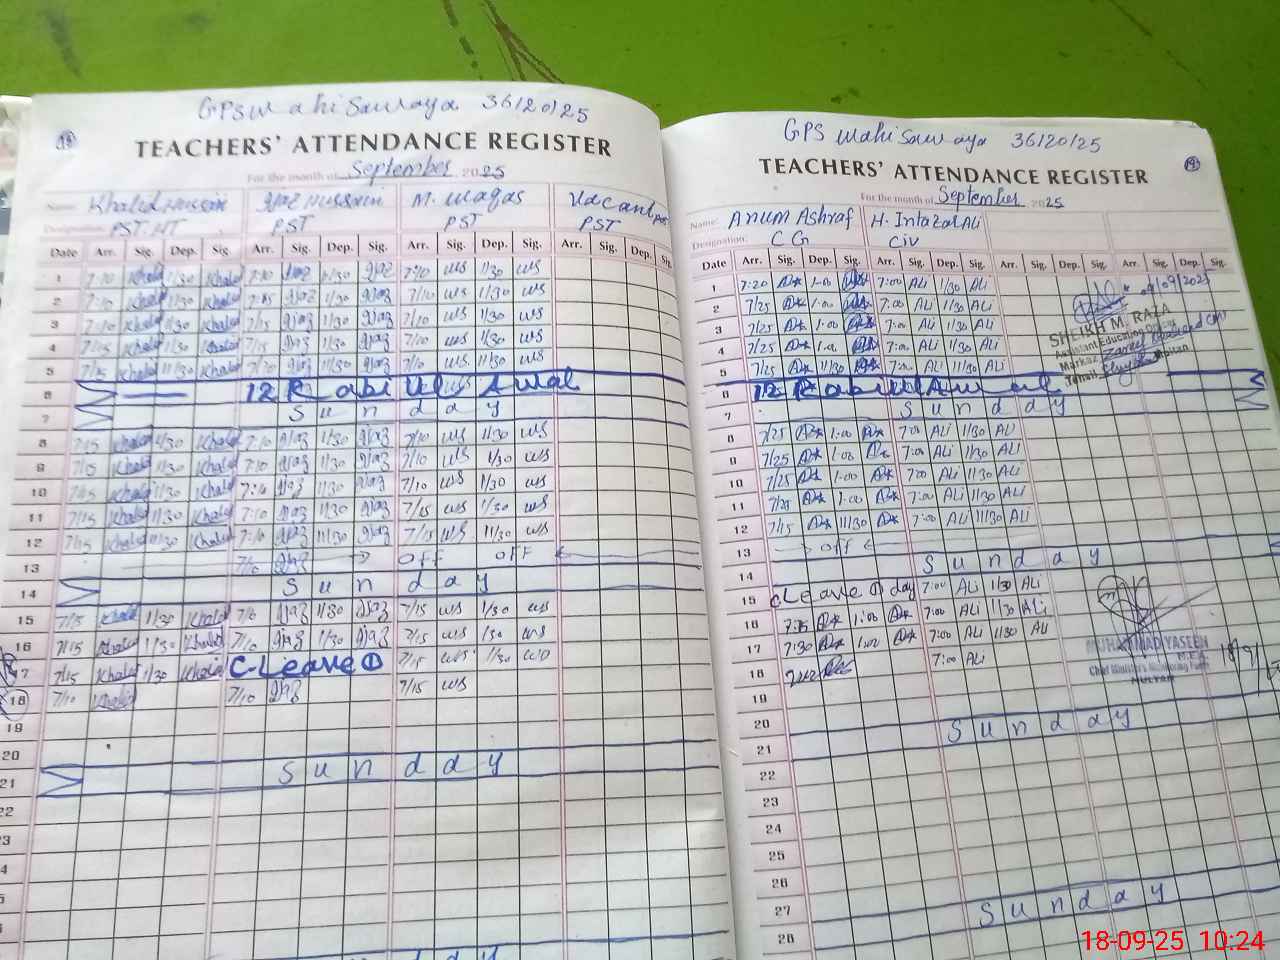 GPS Mahi Sawaya 36120125
19
TEACHERS' ATTENDANCE REGISTER
For the month of September 2025
Name: Khalid Hussain Ijaz Hussain M. Waqas Vacant
Designation: PST HT PST PST PST
Date Arr. Sig. Dep. Sig. Arr. Sig. Dep. Sig. Arr. Sig. Dep. Sig. Arr. Sig. Dep. Sig.
1 7:10 Khalid 1/30 Khalid 7:10 Ijaz 1/30 Ijaz 7:10 WS 1/30 WS
2 7:10 Khalid 1/30 Khalid 7:15 Ijaz 1/30 Ijaz 7/10 WS 1/30 WS
3 7:10 Khalid 1/30 Khalid 7/15 Ijaz 1/30 Ijaz 7/10 WS 1/30 WS
4 7/15 Khalid 1/30 Khalid 7/15 Ijaz 1/30 Ijaz 7/10 WS 1/30 WS
5 7/15 Khalid 1/30 Khalid 7/10 Ijaz 1/30 Ijaz 7/10 WS 1/30 WS
6 12 Rabi Ul Awal
7 Sunday
8 7/15 Khalid 1/30 Khalid 7:10 Ijaz 1/30 Ijaz 7/10 WS 1/30 WS
9 7/15 Khalid 1/30 Khalid 7:10 Ijaz 1/30 Ijaz 7/10 WS 1/30 WS
10 7/15 Khalid 1/30 Khalid 7:10 Ijaz 1/30 Ijaz 7/10 WS 1/30 WS
11 7/15 Khalid 1/30 Khalid 7:10 Ijaz 1/30 Ijaz 7/15 WS 1/30 WS
12 7/15 Khalid 1/30 Khalid 7:10 Ijaz 1/30 Ijaz 7/15 WS 1/30 WS
13 7/10 Ijaz OFF OFF
14 Sunday
15 7/15 Khalid 1/30 Khalid Ijaz 1/30 Ijaz 7/15 WS 1/30 WS
16 7/15 Khalid 1/30 Khalid 7/10 Ijaz 1/30 Ijaz 7/15 WS 1/30 WS
17 7/15 Khalid 1/30 Khalid C-Leave 1 7/15 WS 1/30
18 7/10 Khalid 7/10 Ijaz 7/15 WS
19
20
21 Sunday
22
GPS Mahi Sawaya 36120125
TEACHERS' ATTENDANCE REGISTER
For the month of September 2025
Name: Anum Ashraf H. Intazar Ali
Designation: CG Civ
Date Arr. Sig. Dep. Sig. Arr. Sig. Dep. Sig. Arr. Sig. Dep. Sig. Arr. Sig. Dep. Sig.
1 7:20 1:00 7:00 ALi 1/30 ALi
2 7/25 1:00 7:00 ALi 1/30 ALi
3 7/25 1:00 7:00 ALi 1/30 ALi
4 7/25 1:00 7:00 ALi 1/30 ALi
5 7/25 1/30 7:00 ALi 1/30 ALi
SHEIKH M. RAZA
Assistant Education
Markaz
Tehsil
6 12 Rabi Ul Awal
7 Sunday
8 7/25 1:00 7:00 ALi 1/30 ALi
9 7/25 1:00 7:00 ALi 1/30 ALi
10 7/25 1:00 7:00 ALi 1/30 ALi
11 7/25 1:00 7:00 ALi 1/30 ALi
12 7/15 1/30 7:00 ALi 1/30 ALi
13 off
14 Sunday
15 cLeave 1 day 7:00 ALi 1/30 ALi
16 1:00 7:00 ALi 1/30 ALi
17 7:30 1:00 7:00 ALi 1/30 ALi
18 7:00 ALi
MUHAMMAD YASEEN
M.E.A
Chief Minister's Monitoring Force
MULTAN
19
20
21 Sunday
22
23
24
25
26
27
28 Sunday
18-09-25 10:24